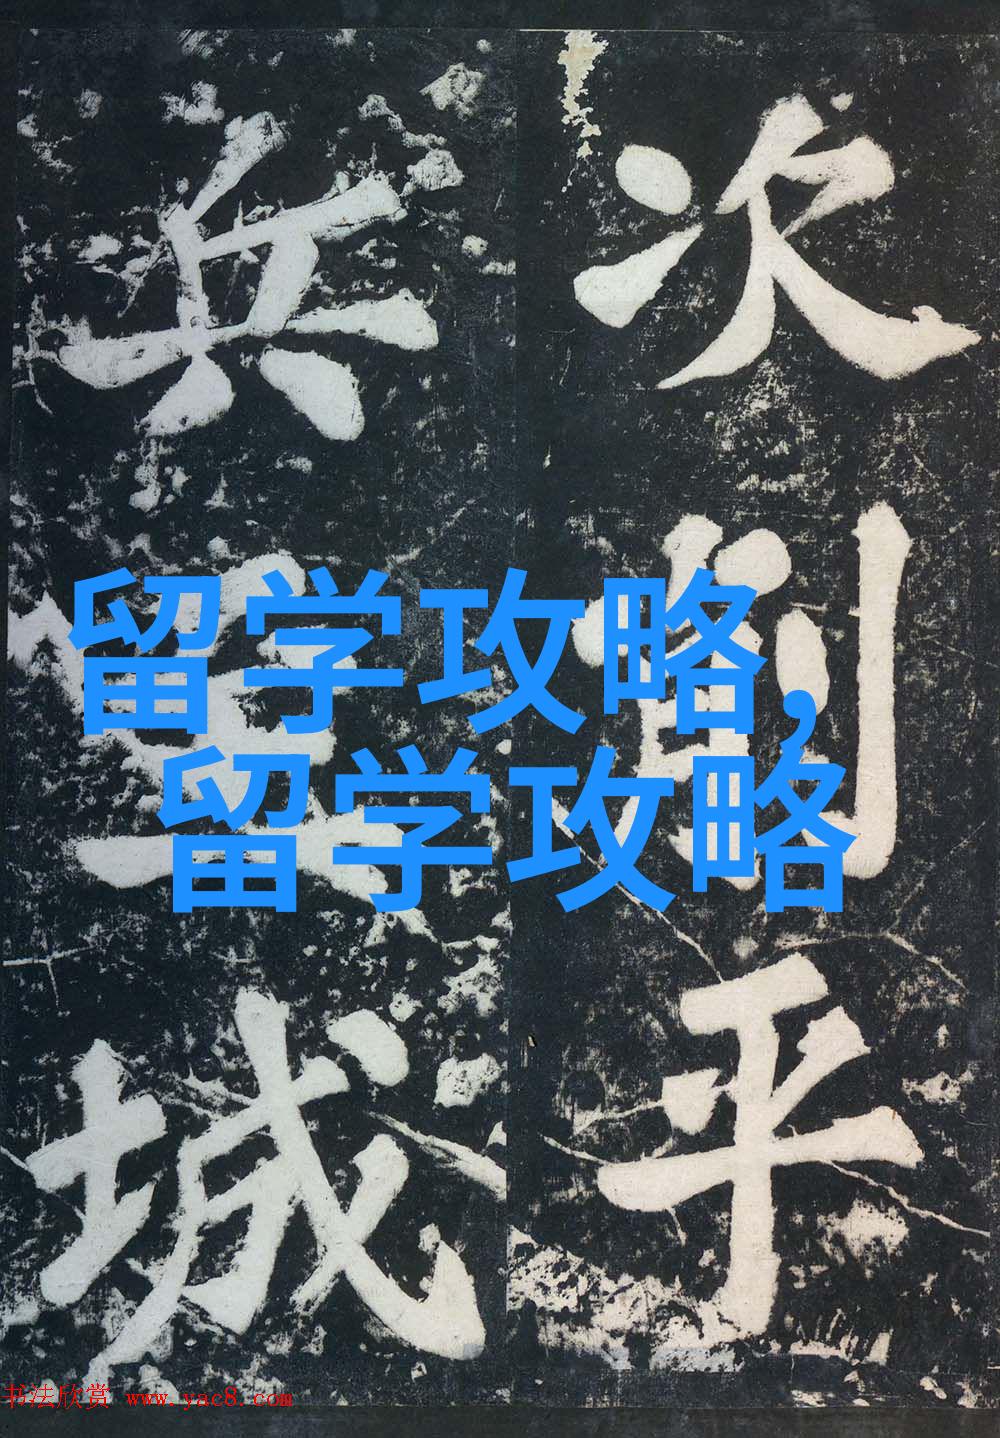 次 平
兵 城
留学攻略,
留学攻略
书法欣赏 www.yac8.com